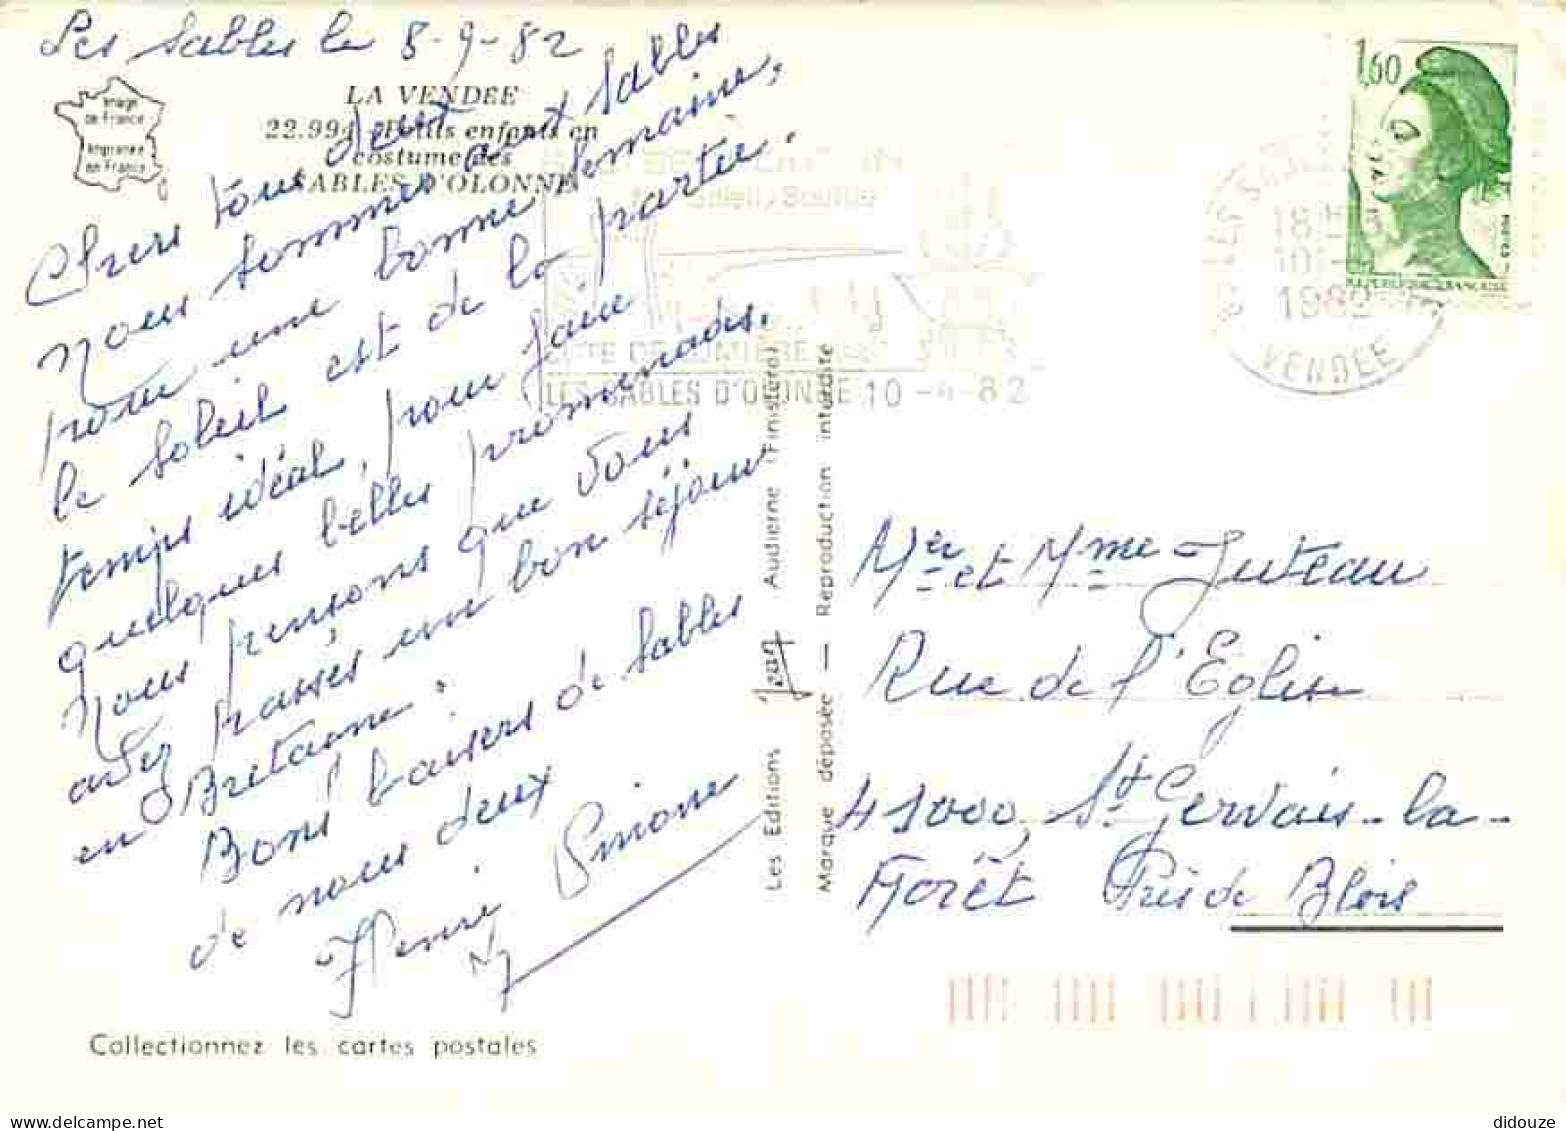 Les Sables le 8-9-82
Image
de France
Imprimée
en France
LA VENDEE
22.994 Petits enfants en
costume des
SABLES D'OLONNE
Chers tous deux
nous sommes aux Sables
pour une bonne semaine,
le soleil est de la partie.
temps idéal, pour faire
quelques belles promenades.
Nous pensons que vous
avez passés un bon séjour
en Bretagne.
Bons baisers de Sables
de nous deux
Henri Simone
Collectionnez les cartes postales
Les Editions Jean Audierne (Finistère)
Marque déposée — Reproduction interdite
1,60
REPUBLIQUE FRANÇAISE
18H
10-
1982
VENDEE
COTE DE LUMIERE
LES SABLES D'OLONNE 10-9-82
Mr et Mme Juteau
Rue de l'Eglise
41000, St Gervais-la-
Forêt Près de Blois
didouze